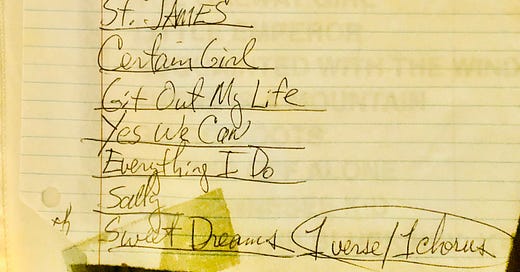 St. JAMES
Certain Girl
Git Out My Life
Yes We Can
Everything I Do
Sally
Sweet Dreams (1 verse/1 chorus